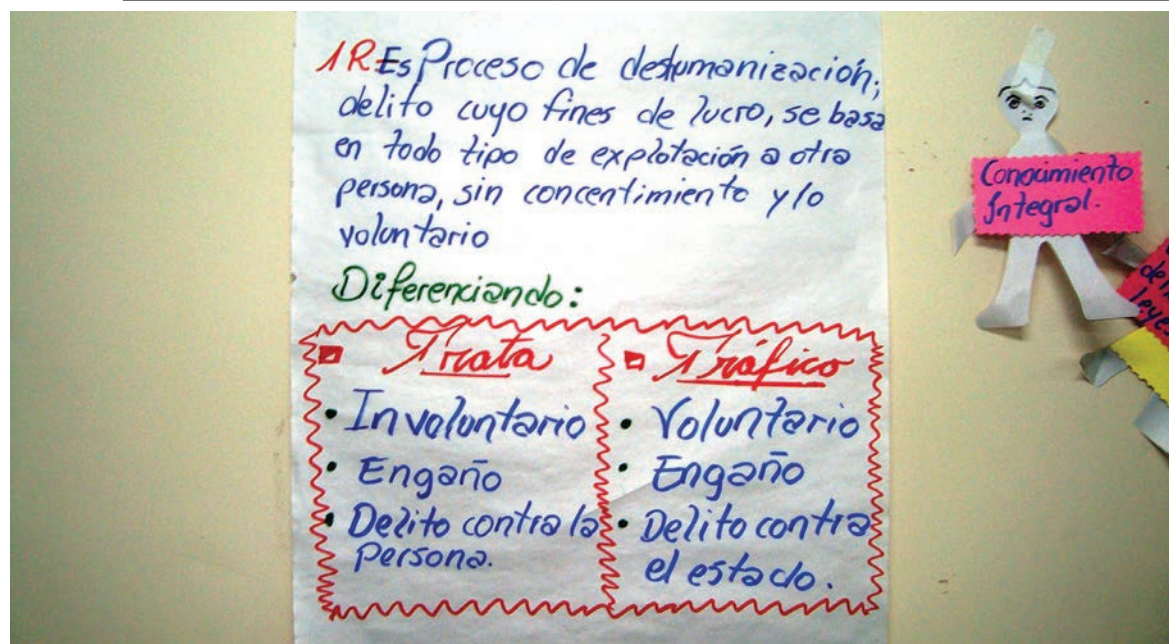 1R Es Proceso de deshumanización;
delito cuyo fines de lucro, se basa
en todo tipo de explotación a otra
persona, sin concentimiento y/o
voluntario
Diferenciando:
Trata
• Involuntario
• Engaño
• Delito contra la
Persona.
Tráfico
• Voluntario
• Engaño
• Delito contra
el estado.
Conocimiento
Integral.